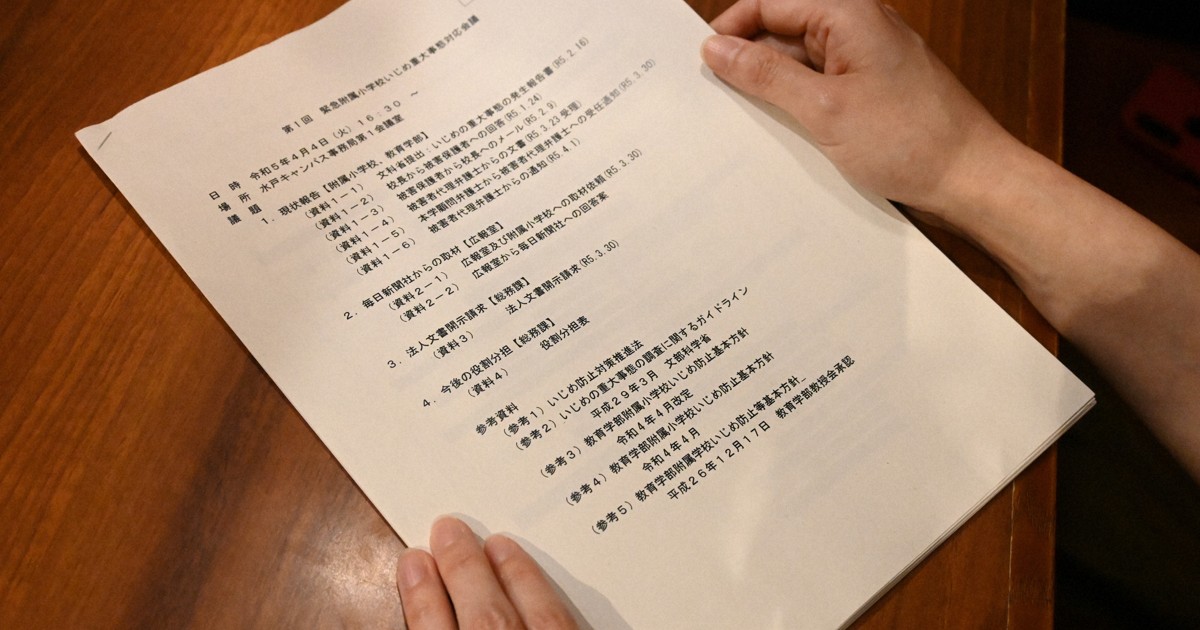 第1回 緊急附属小学校いじめ重大事態対応会議
日 時 令和5年4月4日（火）16：30 ～
場 所 水戸キャンパス事務局第1会議室
議 題
1．現状報告【附属小学校、教育学部】
（資料1－1） 文科省提出：いじめの重大事態の発生報告書(R5.2.16)
（資料1－2） 校長から被害保護者への回答(R5.1.24)
（資料1－3） 被害保護者から校長へのメール(R5.2.9)
（資料1－4） 被害者代理弁護士からの文書(R5.3.23受理)
（資料1－5） 本学顧問弁護士から被害者代理弁護士への受任通知(R5.3.30)
（資料1－6） 被害者代理弁護士からの通知(R5.4.1)
2．毎日新聞社からの取材【広報室】
（資料2－1） 広報室及び附属小学校への取材依頼(R5.3.30)
（資料2－2） 広報室から毎日新聞社への回答案
3．法人文書開示請求【総務課】
（資料3） 法人文書開示請求(R5.3.30)
4．今後の役割分担【総務課】
（資料4） 役割分担表
参考資料
（参考1）いじめ防止対策推進法
（参考2）いじめの重大事態の調査に関するガイドライン
平成29年3月 文部科学省
（参考3）教育学部附属小学校いじめ防止基本方針
令和4年4月改定
（参考4）教育学部附属小学校いじめ防止基本方針
令和4年4月
（参考5）教育学部附属学校いじめ防止等基本方針
平成26年12月17日 教育学部教授会承認